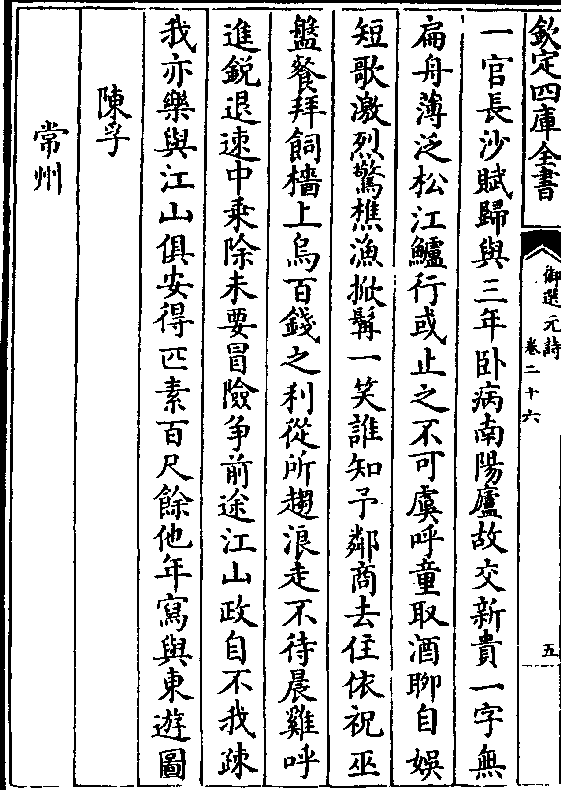 欽定四庫全書
御選元詩
卷二十六
五
一官長沙賦歸與三年卧病南陽廬故交新貴一字無
扁舟薄泛松江鱸行或止之不可虞呼童取酒聊自娛
短歌激烈驚樵漁掀髯一笑誰知予鄰商去住依祝巫
盤餐拜飼檣上烏百錢之利從所趨浪走不待晨雞呼
進銳退速中乗除未要冒險争前途江山政自不我疎
我亦樂與江山俱安得匹素百尺餘他年寫與東遊圖
陳孚
常州